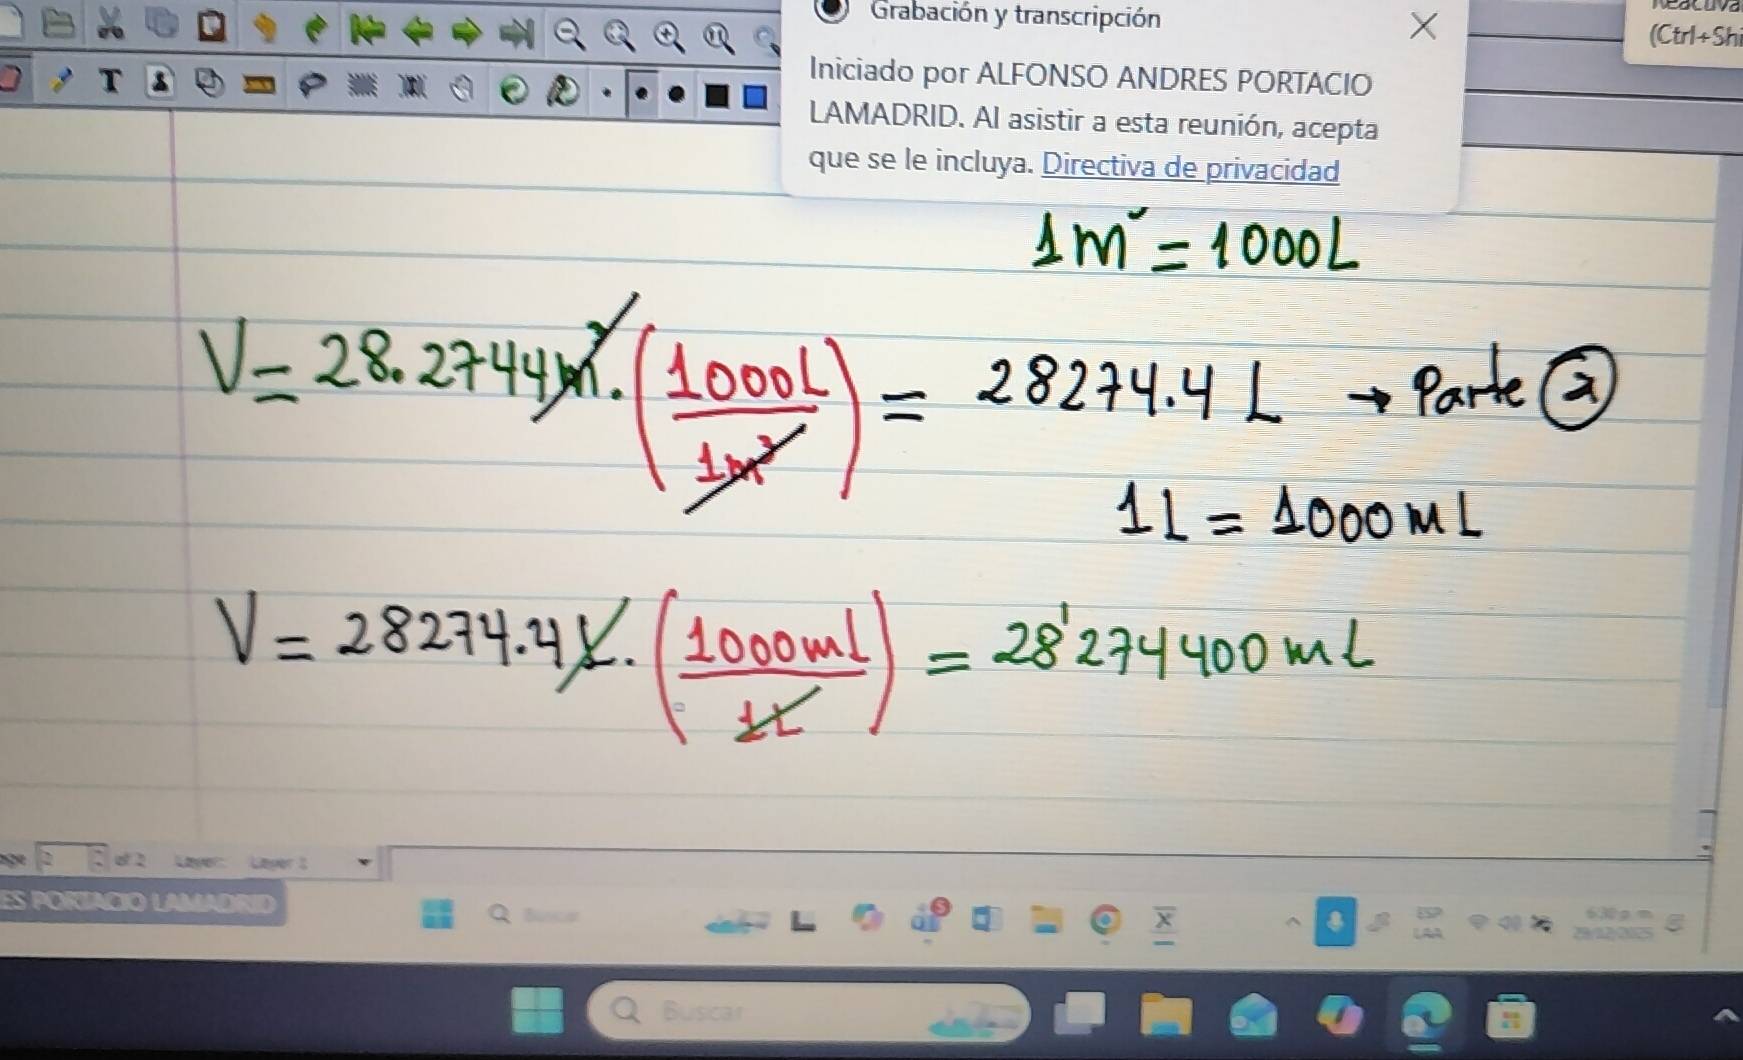 Grabación y transcripción
(Ctrl+Shi
Iniciado por ALFONSO ANDRES PORTACIO
LAMADRID. Al asistir a esta reunión, acepta
que se le incluya. Directiva de privacidad
T
1m³ = 1000L
V = 28.2744m³. (1000L / 1m³) = 28274.4 L → Parte ②
1L = 1000mL
V = 28274.4L. (1000mL / 1L) = 28'274400mL
2 of 2 Layer: Layer 1
ES PORTACIO LAMADRID
Buscar
ESP
LAA
6:30 p.m.
29/12/2025
Buscar